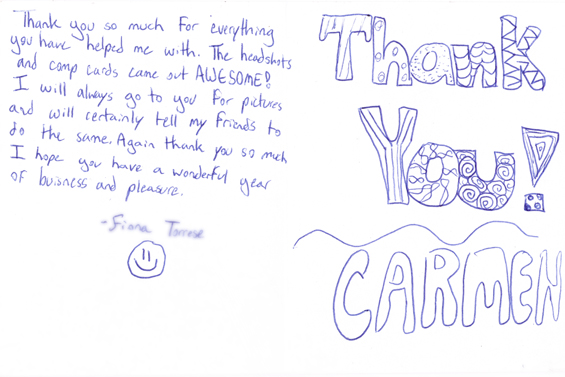 Thank you so much for everything
you have helped me with. The headshots
and comp cards came out AWESOME!
I will always go to you for pictures
and will certainly tell my friends to
do the same. Again thank you so much
I hope you have a wonderful year
of buisness and pleasure.
-Fiona
Thank
You!
CARMEN